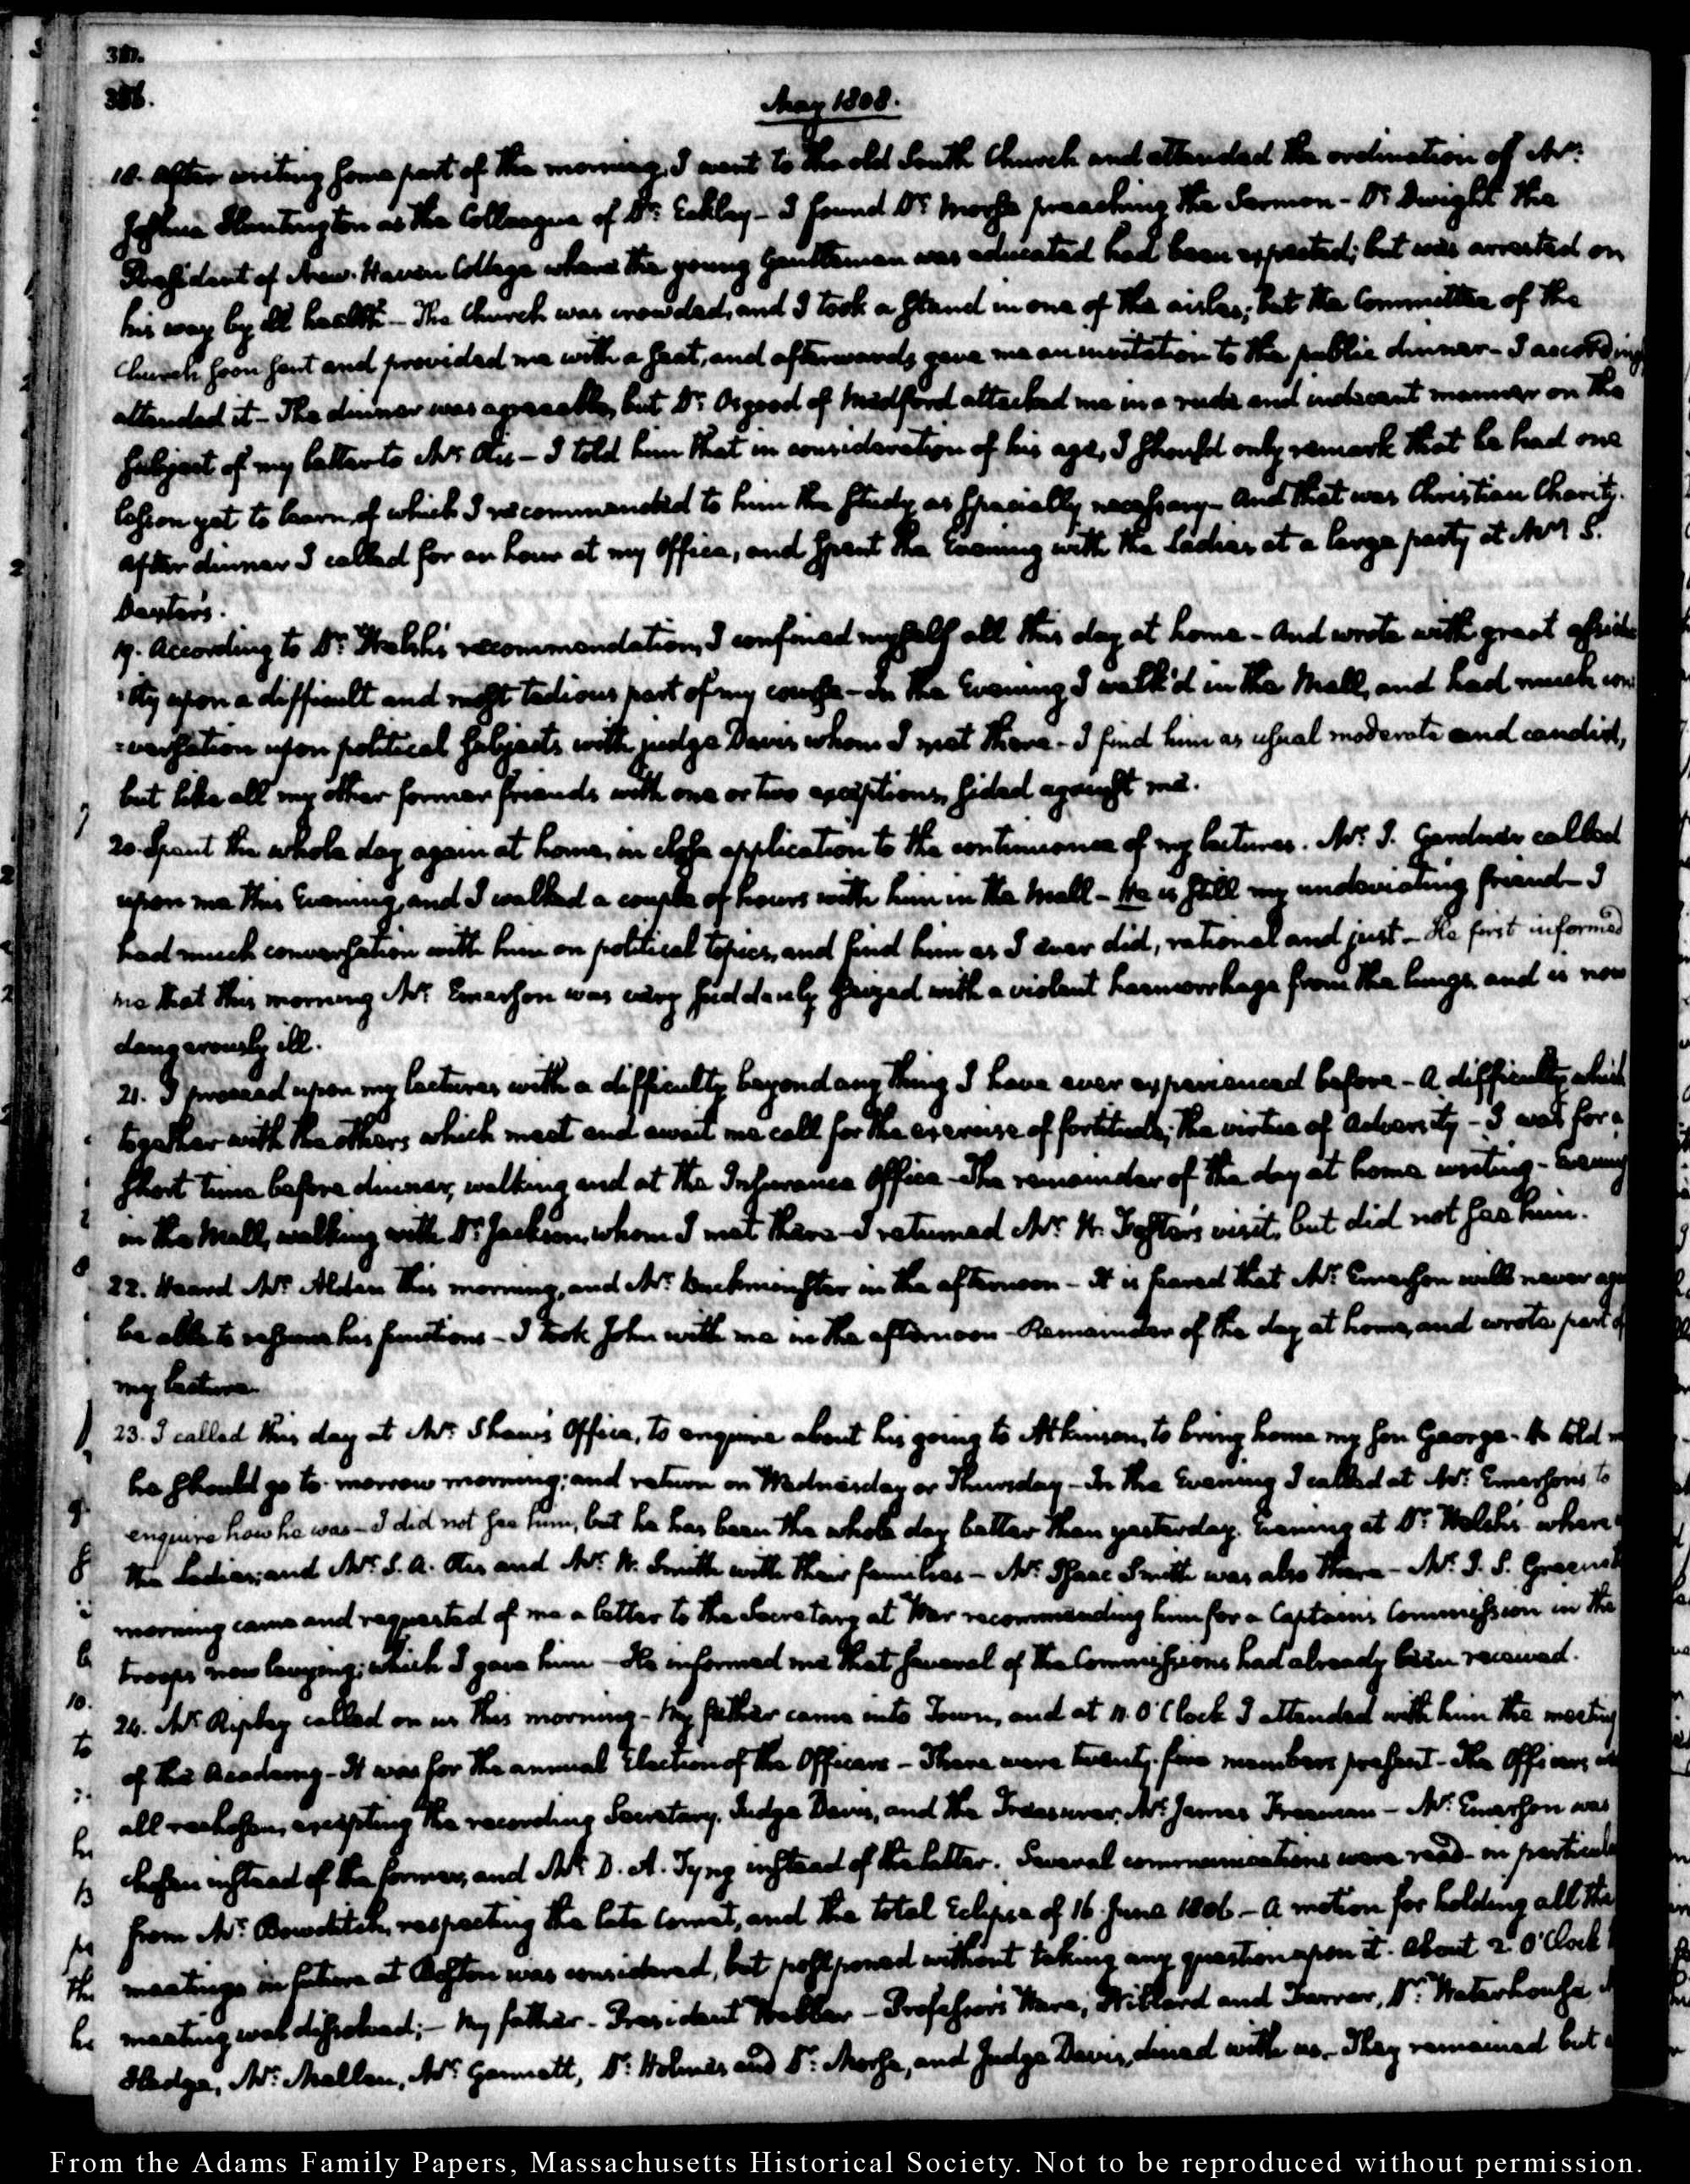 386.
May 1808.
18. After writing some part of the morning, I went to the old South Church and attended the ordination of Mr:
Joshua Huntington as the Colleague of Dr: Eckley - I found Dr: Morse preaching the Sermon - Dr: Dwight the
President of New-Haven College where the young Gentleman was educated had been expected; but was arrested on
his way by ill health - The Church was crowded, and I took a stand in one of the aisles; but the Committee of the
Church soon sent and provided me with a seat, and afterwards gave me an invitation to the public dinner - I according
attended it - The dinner was agreeable, but Dr: Osgood of Medford attacked me in a rude and indecent manner on the
subject of my letter to Mr: Otis - I told him that in consideration of his age, I should only remark that he had one
lesson yet to learn, of which I recommended to him the study as specially necessary - And that was Christian Charity.
After dinner I called for an hour at my Office, and spent the Evening with the Ladies, at a large party at Mr: S.
Dexter's.
19. According to Dr: Welsh's recommendation, I confined myself all this day at home - And wrote with great assidu
:ity upon a difficult and most tedious part of my course - In the Evening I walk'd in the Mall, and had much con
:versation upon political subjects with judge Davis whom I met there - I find him as usual moderate and candid,
but like all my other former friends with one or two exceptions, sided against me.
20. Spent the whole day again at home, in close application to the continuance of my lectures. Mr: J. Gardner called
upon me this Evening, and I walked a couple of hours with him in the Mall - He is still my undeviating friend - I
had much conversation with him on political topics, and find him as I ever did, rational and just - He first informed
me that this morning Mr: Emerson was very suddenly seized with a violent haemorrhage from the lungs, and is now
dangerously ill.
21. I proceed upon my lectures with a difficulty beyond any thing I have ever experienced before - A difficulty which
together with the others which meet and await me call for the exercise of fortitude; the virtue of Adversity - I was for a
short time before dinner, walking and at the Insurance Office - The remainder of the day at home writing - Evening
in the Mall, walking with Dr: Jackson, whom I met there - I returned Mr: W. Foster's visit, but did not see him.
22. Heard Mr: Alden this morning, and Mr: Buckminster in the afternoon - It is feared that Mr: Emerson will never aga
be able to resume his functions - I took John with me in the afternoon - Remainder of the day at home, and wrote part of
my lecture.
23. I called this day at Mr: Shaw's Office, to enquire about his going to Atkinson, to bring home my son George - He told m
he should go to-morrow morning; and return on Wednesday or Thursday - In the Evening I called at Mr: Emerson's to
enquire how he was - I did not see him, but he has been the whole day better than yesterday. Evening at Dr: Welsh's where
the Ladies; and Mr: S. A. Otis and Mr: W. Smith with their families - Mr: Isaac Smith was also there - Mr: J. S. Green
morning came and requested of me a letter to the Secretary at War recommending him for a Captain's Commission in the
troops now levying; which I gave him - He informed me that several of the Commissions had already been received.
24. Mr: Ripley called on us this morning - My father came into Town, and at 11. O'Clock I attended with him the meeting
of the Academy - It was for the annual Election of the Officers - There were twenty-five members present - The Officers
all rechosen, excepting the recording Secretary, Judge Davis, and the Treasurer, Mr: James Freeman - Mr: Emerson was
chosen instead of the former, and Mr: D. A. Tyng instead of the latter. Several communications were read - in particular
from Mr: Bowditch, respecting the late Comet, and the total Eclipse of 16. June 1806. - A motion for holding all the
meetings in future at Boston was considered, but postponed without taking any question upon it. About 2. O'Clock
meeting was dissolved; - My father - President Webber - Professors Ware, Willard and Farrar, Dr: Waterhouse,
Hedge, Mr: Mellen, Mr: Gannett, Dr: Holmes and Dr: Morse, and Judge Davis, dined with us. - They remained but
From the Adams Family Papers, Massachusetts Historical Society. Not to be reproduced without permission.